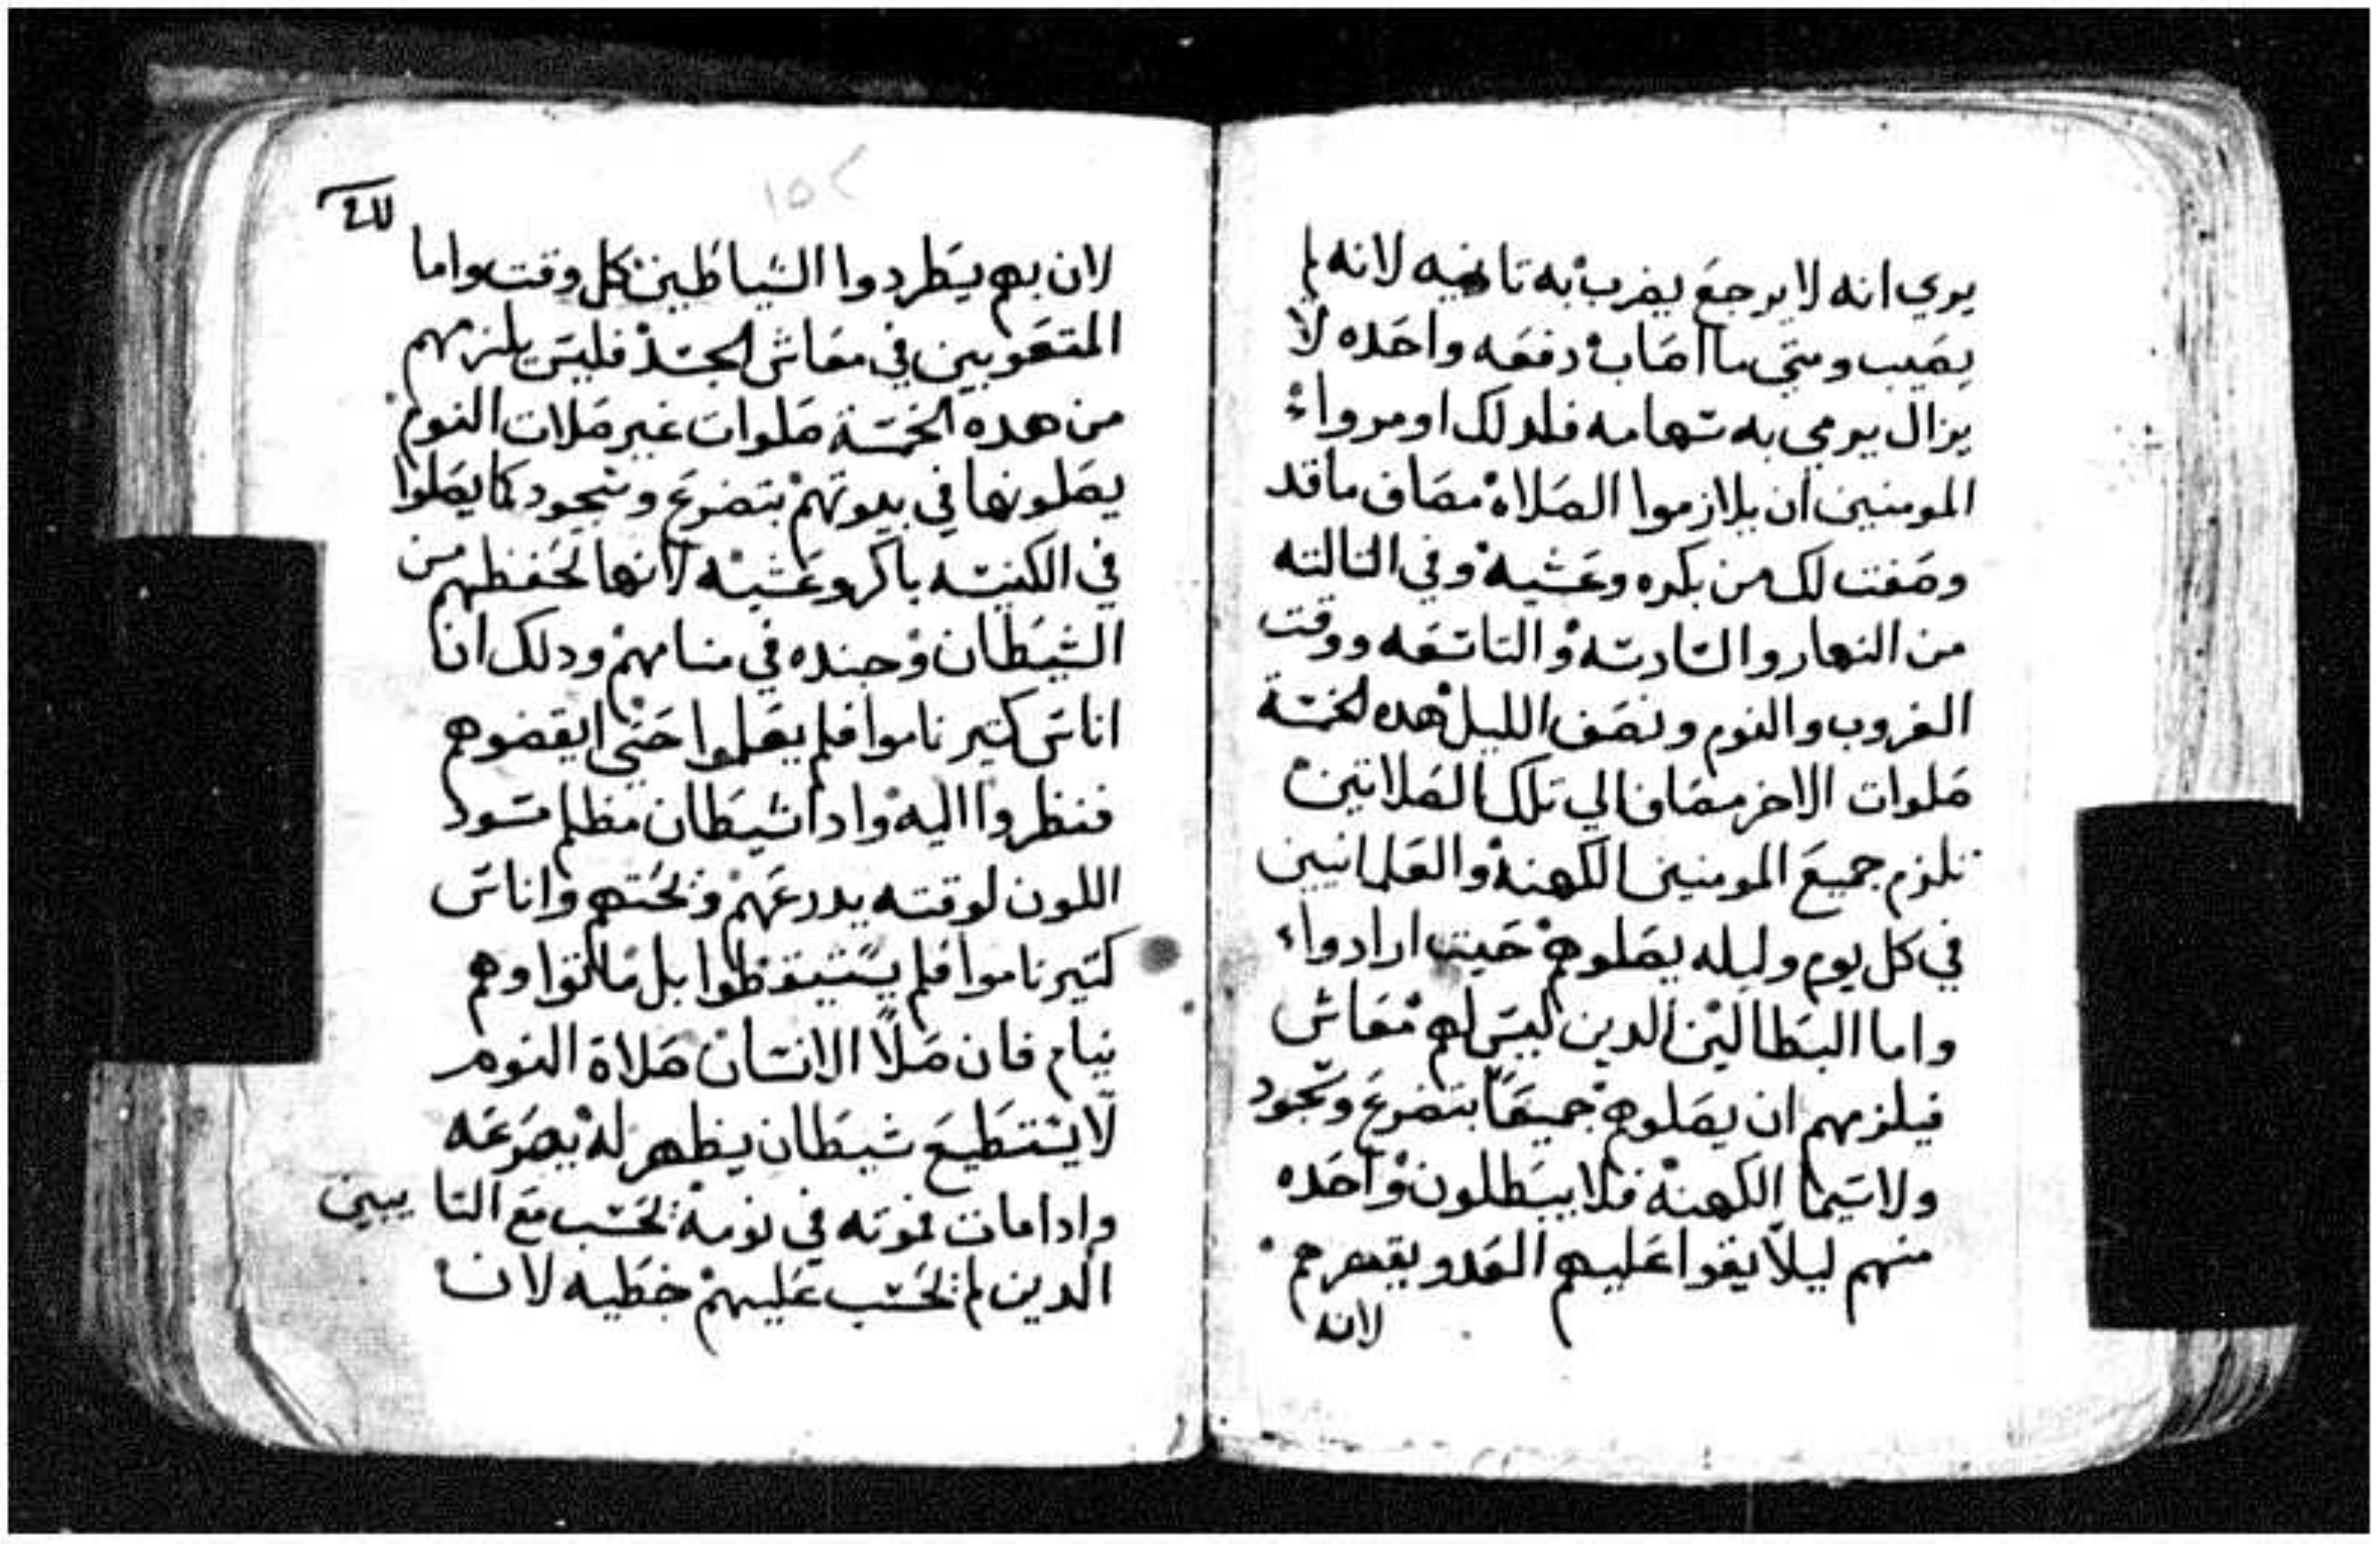 يري انه لا يرجع يضرب به تانيه لانه لم
يصيب ومتي ما اصاب دفعه واحده لا
يزال يرمي به سهامه فلدلك اومرواء
المومنين ان يلازموا الصلاة مضاف ما قد
وصفت لك من بكره وعشيه وفي التالته
من النهار والسادسه والتاسعه ووقت
الغروب والنوم ونصف الليل هده الخمسة
صلوات الاخر مضافا الي تلك الصلاتين
تلزم جميع المومنين الكهنة والعلمانيين
في كل يوم وليله يصلوهم حيت ارادواء
واما البطالين الدين ليس لهم معاش
فيلزمهم ان يصلوهم جميعا بتضرع وسجود
ولاسيما الكهنة فلا يبطلون واحده
منهم ليلا يقوا عليهم العدو يقهرهم
لانه
١٥٢
لان بهم يطردوا الشياطين كل وقت واما
المتعوبين في معاش الجسد فليس يلزمهم
من هده الخمسة صلوات غير صلات النوم
يصلونها في بيوتهم بتضرع وسجود كما يصلوا
في الكنيسه باكر وعشيه لانها تحفظهم من
الشيطان وجنده في منامهم ودلك ان
اناس كتير ناموا فلم يصلوا حتي ايقضوهم
فنظروا اليه وادا شيطان مظلم مسود
اللون لوقته يدرعهم وتحتهم واناس
كتير ناموا فلم يستيقظوا بل ماتوا وهم
نيام فان صلا الانسان صلاة النوم
لا يستطيع شيطان يظهر له يصرعه
وادا مات موته في نومه تحسب مع التايبين
الدين لم تحسب عليهم خطيه لان